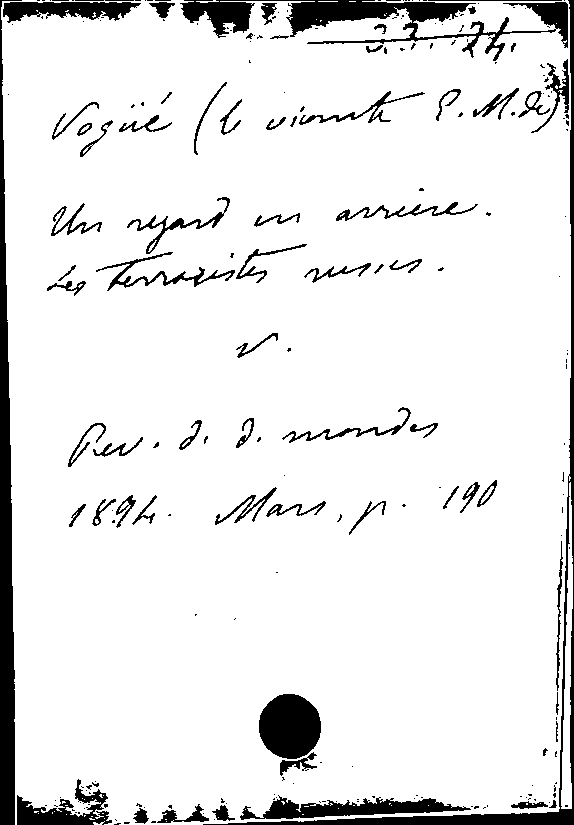 3.3.124.
Vogüé (le vicomte E. M. de)
Un regard en arrière.
Les Terroristes russes.
v.
Rev. d. d. mondes
1894. Mars, p. 190